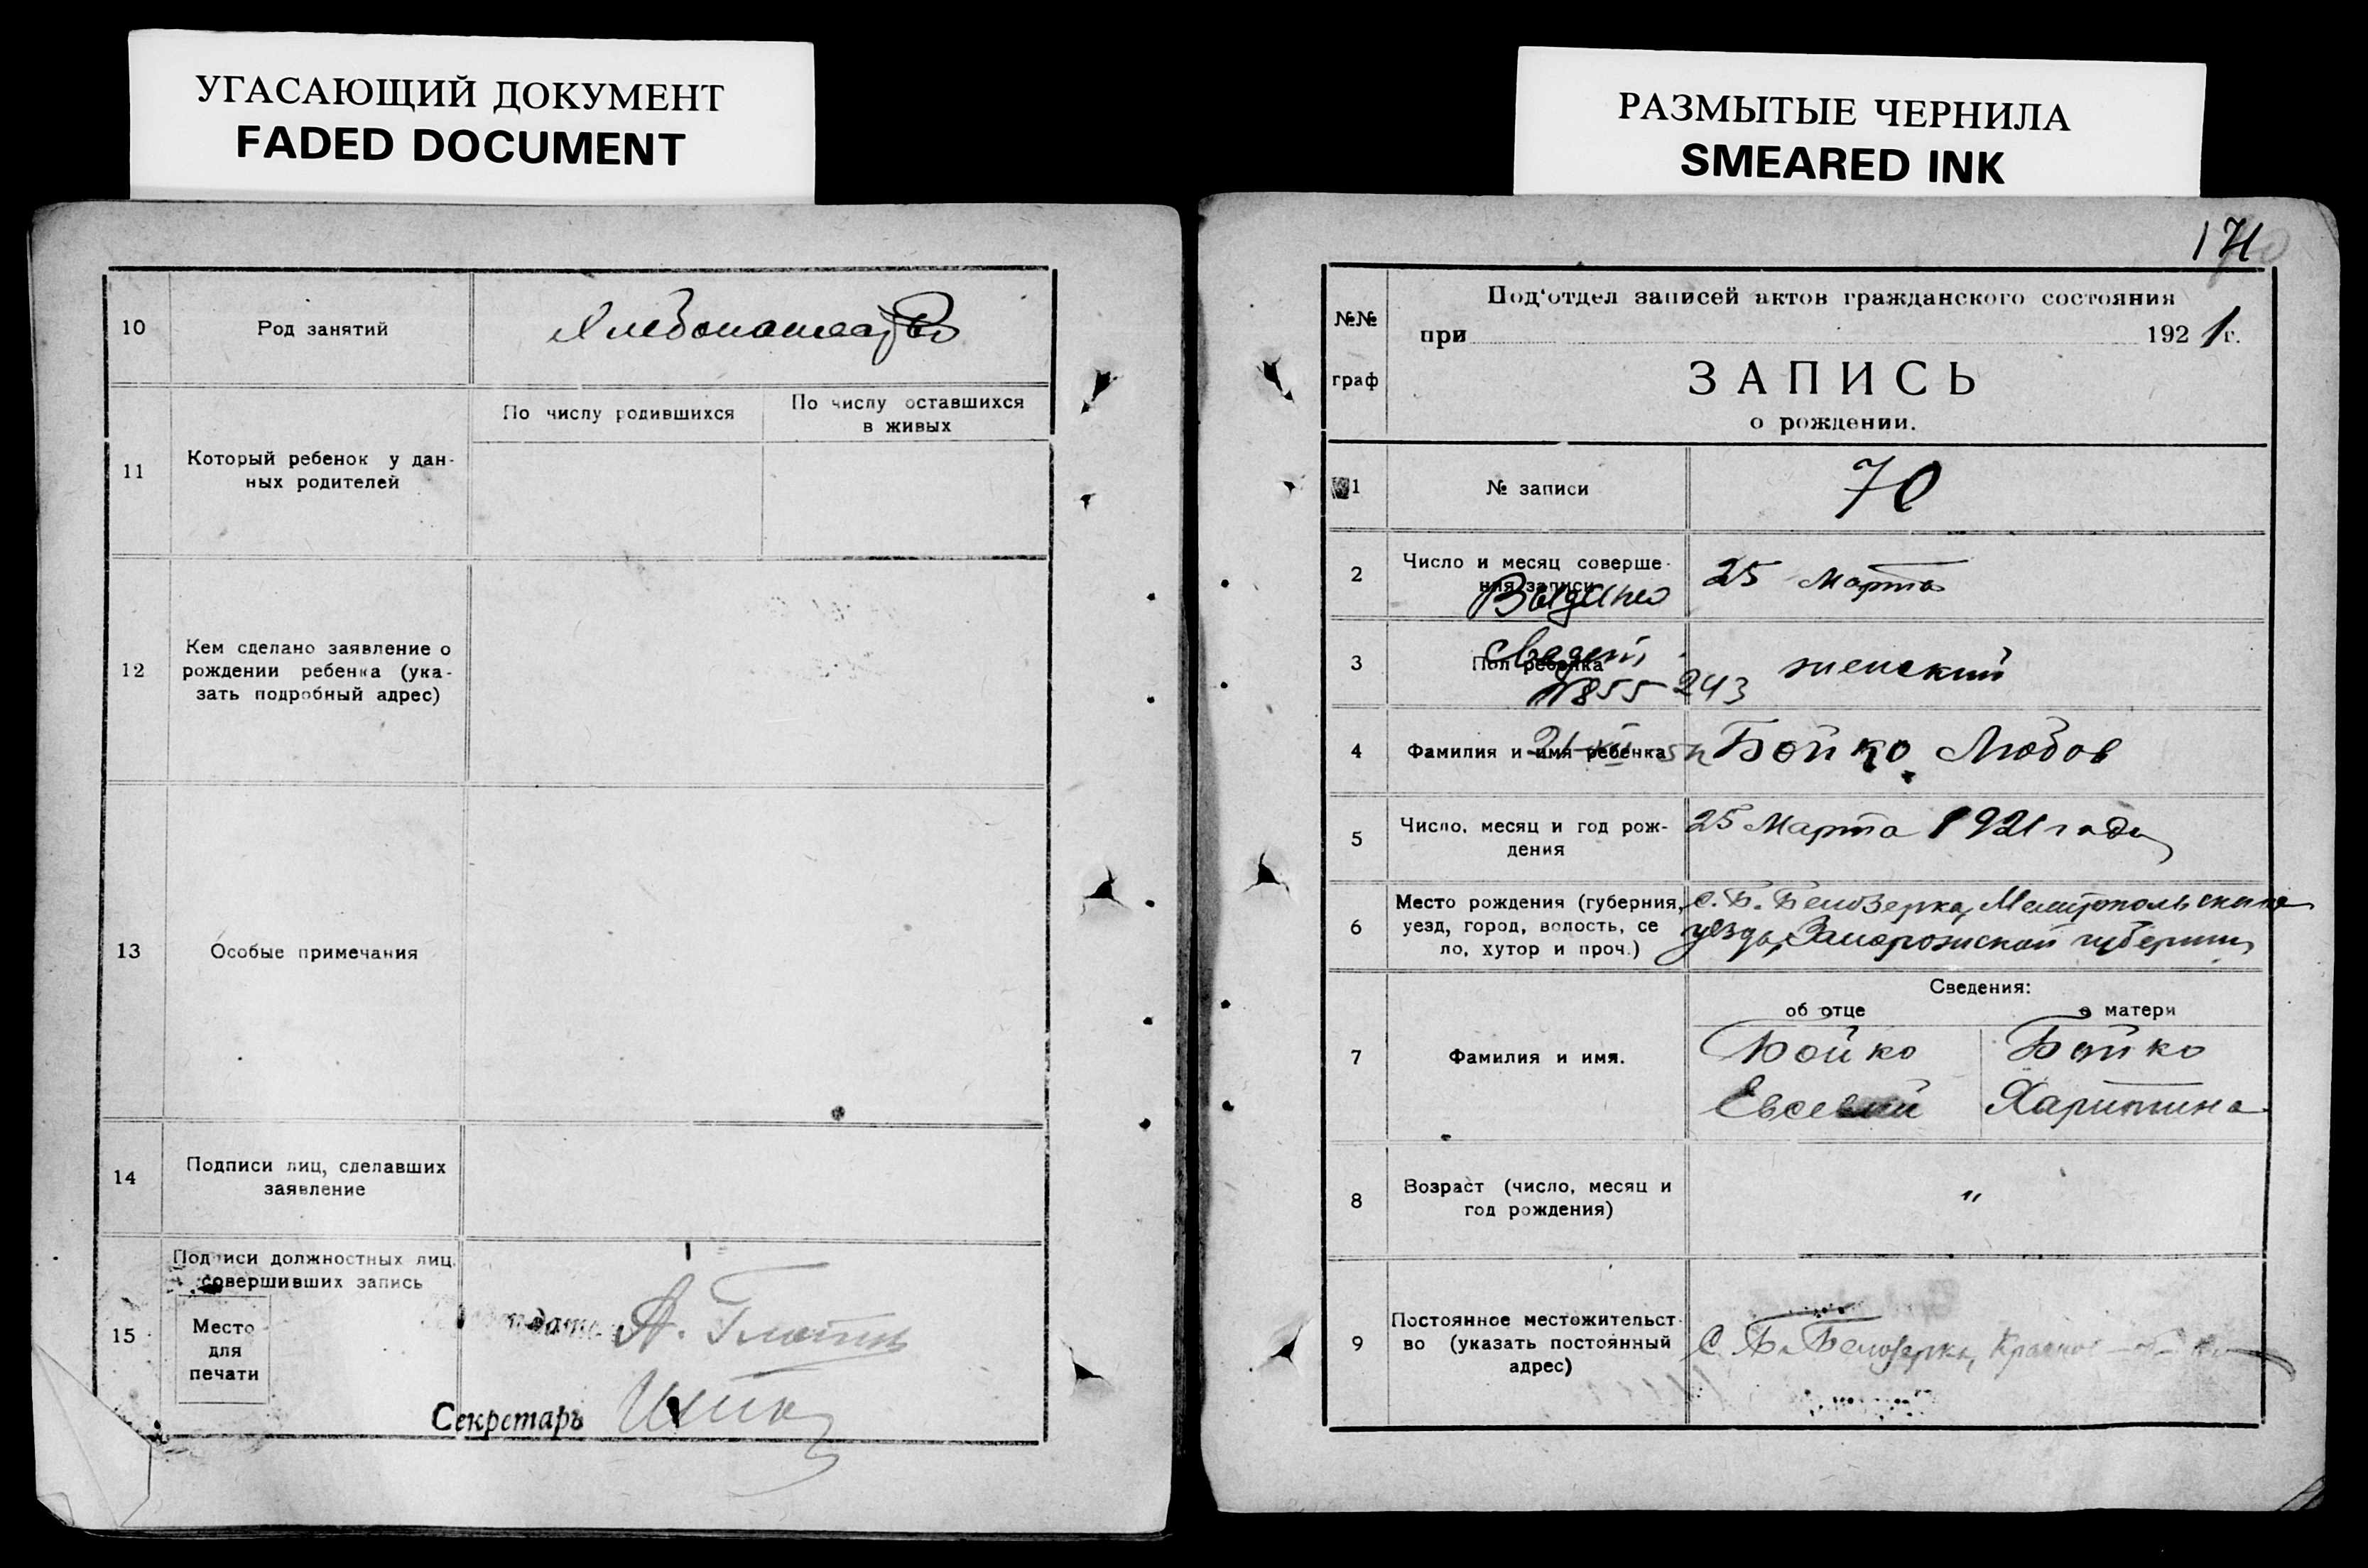 УГАСАЮЩИЙ ДОКУМЕНТ
FADED DOCUMENT
10
Род занятий
Хлебопашество
11
Который ребенок у дан-
ных родителей
По числу родившихся
По числу оставшихся
в живых
12
Кем сделано заявление о
рождении ребенка (ука-
зать подробный адрес)
13
Особые примечания
14
Подписи лиц, сделавших
заявление
15
Подписи должностных лиц,
совершивших запись
Место
для
печати
А.
Секретарь
РАЗМЫТЫЕ ЧЕРНИЛА
SMEARED INK
171
№№
граф
Под'отдел записей актов гражданского состояния
при 1921 г.
ЗАПИСЬ
о рождении.
1
№ записи
70
2
Число и месяц соверше-
ния записи
25 марта
Выдано
3
Пол ребенка
женский
свидет
855 243
4
Фамилия и имя ребенка
Бойко Любов
5
Число, месяц и год рож-
дения
25 Марта 1921 года
6
Место рождения (губерния,
уезд, город, волость, се
ло, хутор и проч.)
с. Б. Белозерка, Мелитопольского
уезда, Запорожской губернии
Сведения:
об отце
о матери
7
Фамилия и имя.
Бойко
Евсевий
Бойко
Харитина
8
Возраст (число, месяц и
год рождения)
"
9
Постоянное местожительст-
во (указать постоянный
адрес)
С. Б. Белозерка,